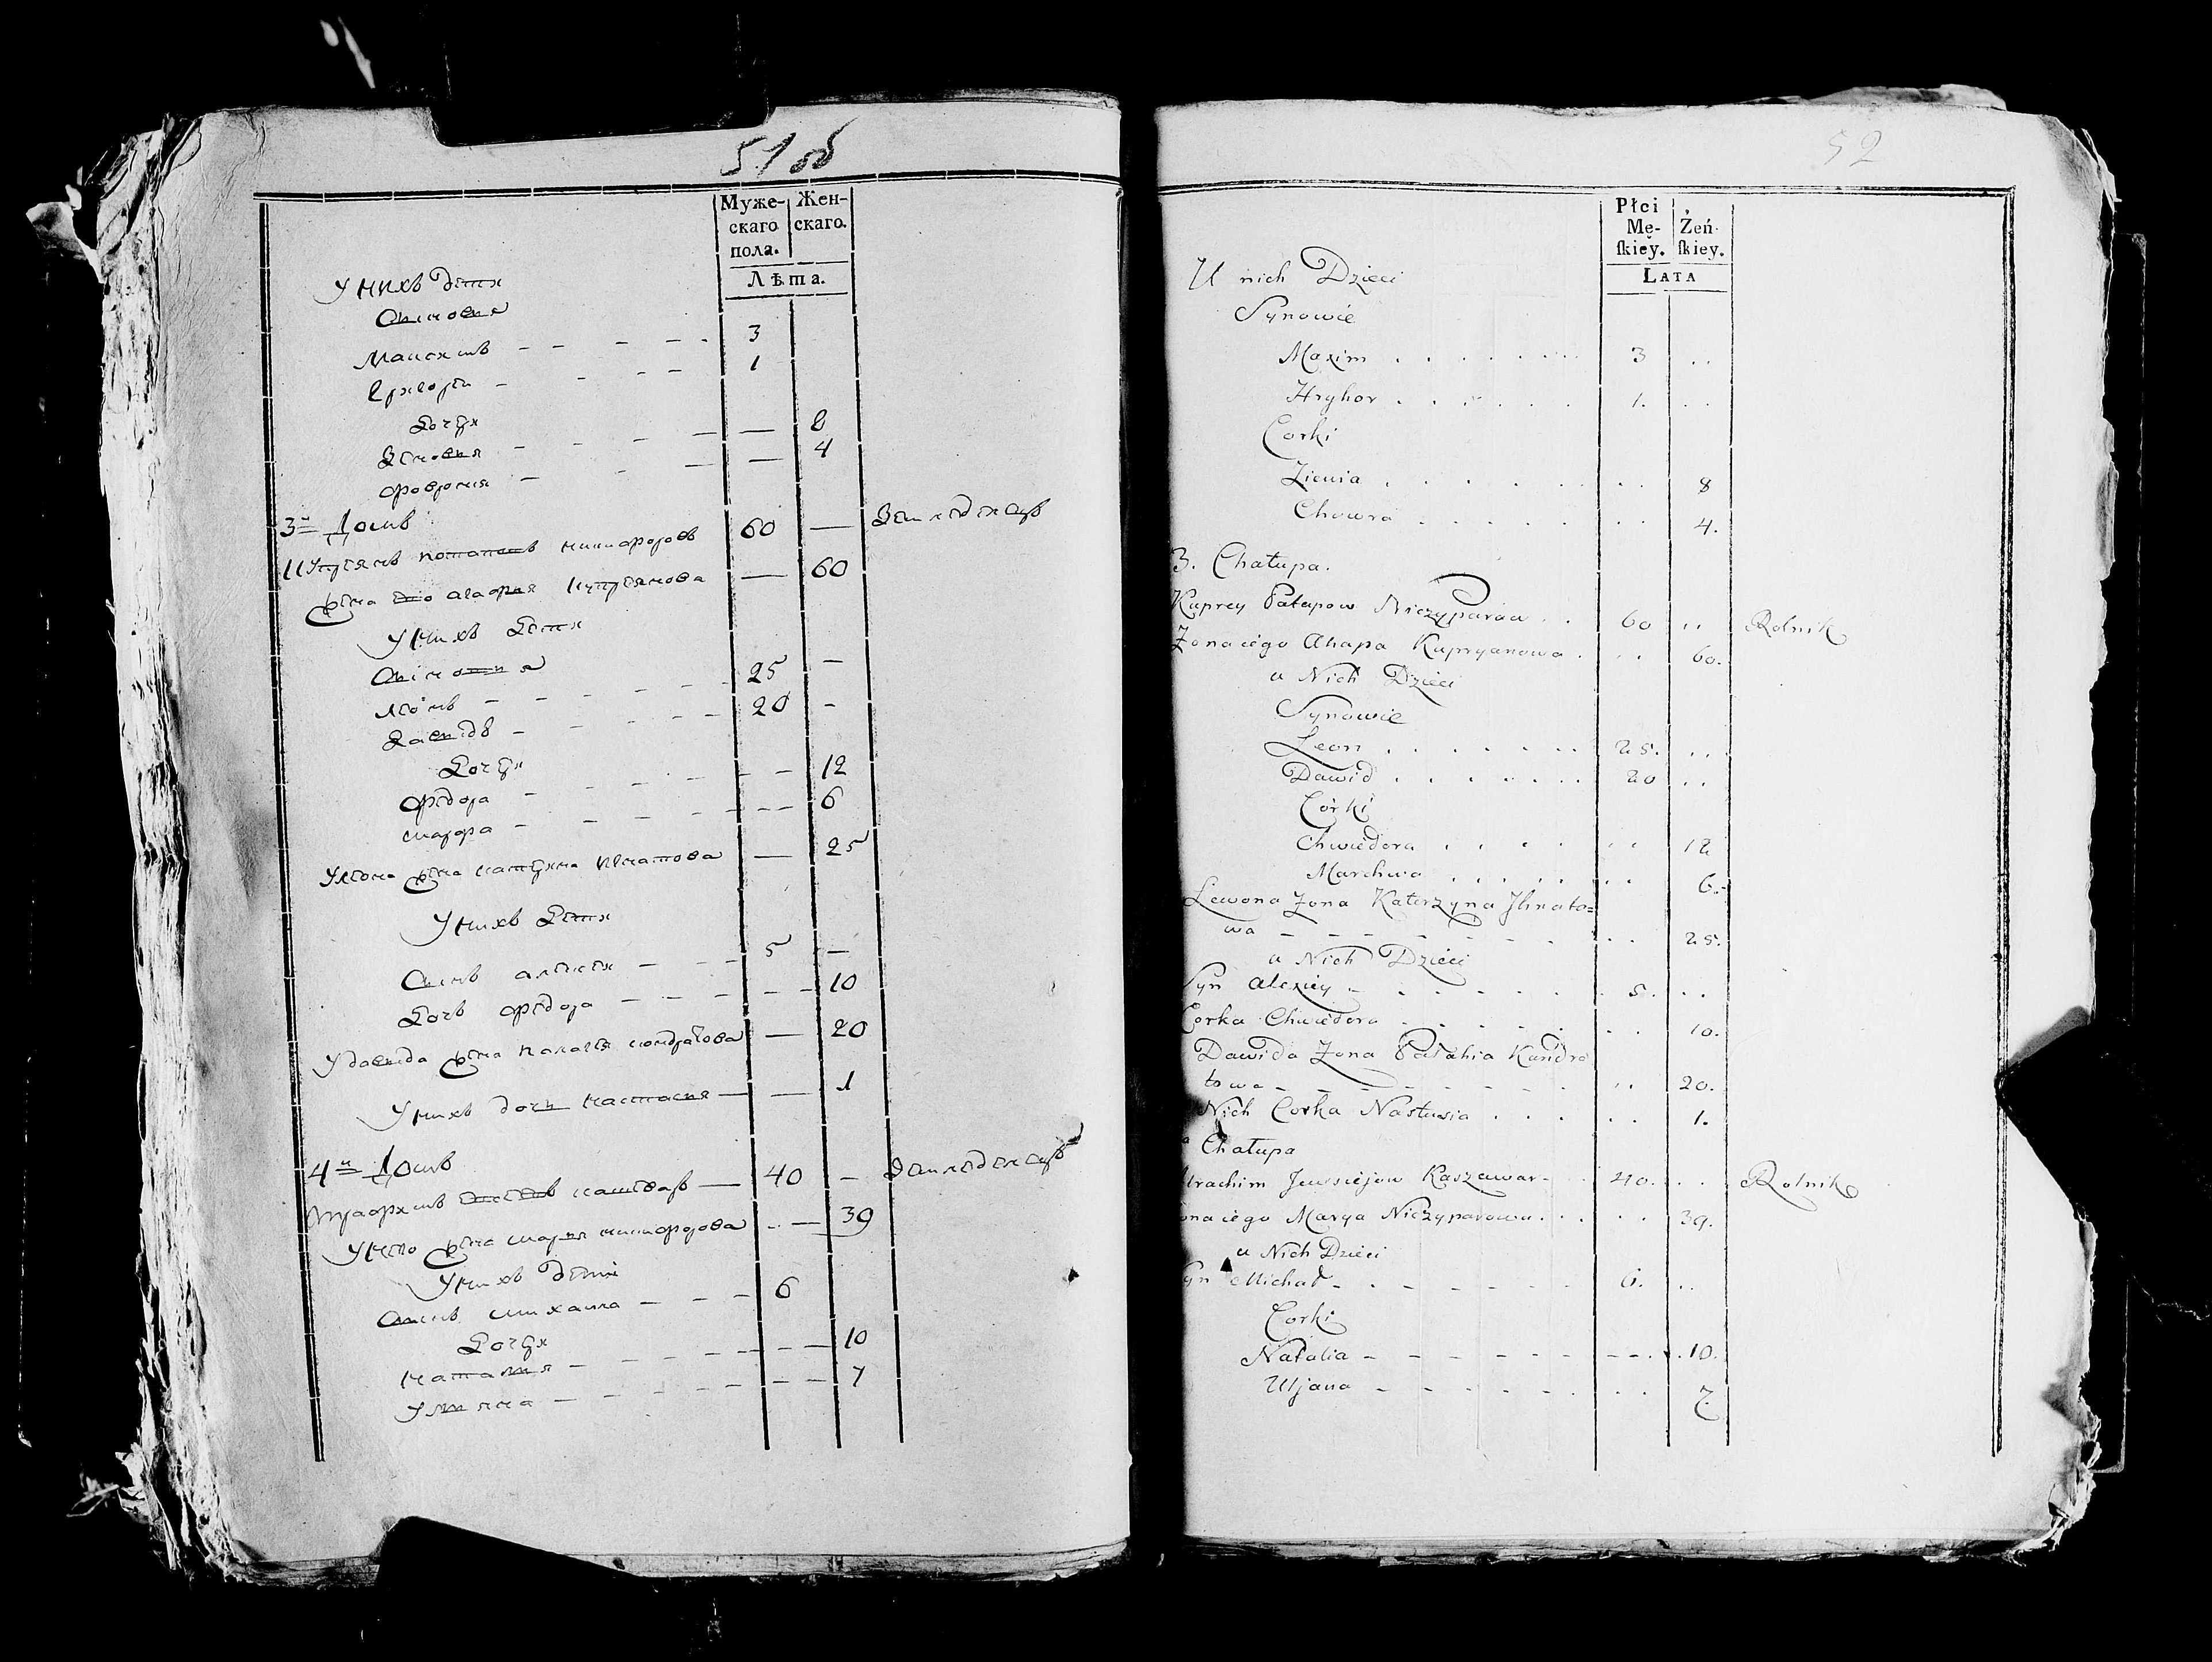 51 об
Муже- Жен-
скаго скаго.
пола.
Лѣта.
У нихъ дети
Синовя
Максимъ 3
Григори 1
Дочери
Зеновия 8
Феврония 4
3й Домъ
Куприянъ Потаповъ Ничипоровъ 60 — Земледелецъ
Жена его Агафия Куприянова — 60
У нихъ Дети
Синовия
Леонъ 25 —
Давидъ 20 —
Дочери
Федора 12
Марфа 6
У Леона жена Катерина Игнатова — 25
У нихъ Дети
Синъ Алексей 5 —
Дочь Федора 10
У Давида жена Палагея Кондратова — 20
У нихъ дочь Настасия — 1
4й Домъ
40 — Земледелецъ
У него жена Мария Ничипорова — 39
У нихъ дети
Синъ Михаила 6
Дочери
Наталия 10
Улияна 7
52
Płci Żeń-
Mę- ſkiey.
ſkiey.
LATA
U nich Dzieci
Synowie
Maxim 3 ..
Hryhor 1. ..
Corki
Zienia .. 8
Chowra .. 4.
3. Chałupa.
Kuprey Patapow Niczyparow 60 .. Rolnik
Zona iego Ahapa Kupryanowa .. 60.
u Nich Dzieci
Synowie
Leon 25. ..
Dawid 20 ..
Córki
Chwiedora .. 12
Marchwa .. 6.
Lewona Zona Katerzyna Ihnato=
wa .. 25.
u Nich Dzieci
Syn Alexiey 5. ..
Corka Chwiedora .. 10.
Dawida Zona Pałahia Kandra
towa .. 20.
Nich Corka Nastusia .. 1.
Chałupa
Jewsiejow Kaszawar 40. .. Rolnik
ona iego Marya Niczyparowa .. 39.
u Nich Dzieci
yn Michał 6. ..
Corki
Natalia 10.
Uljana .. 7.